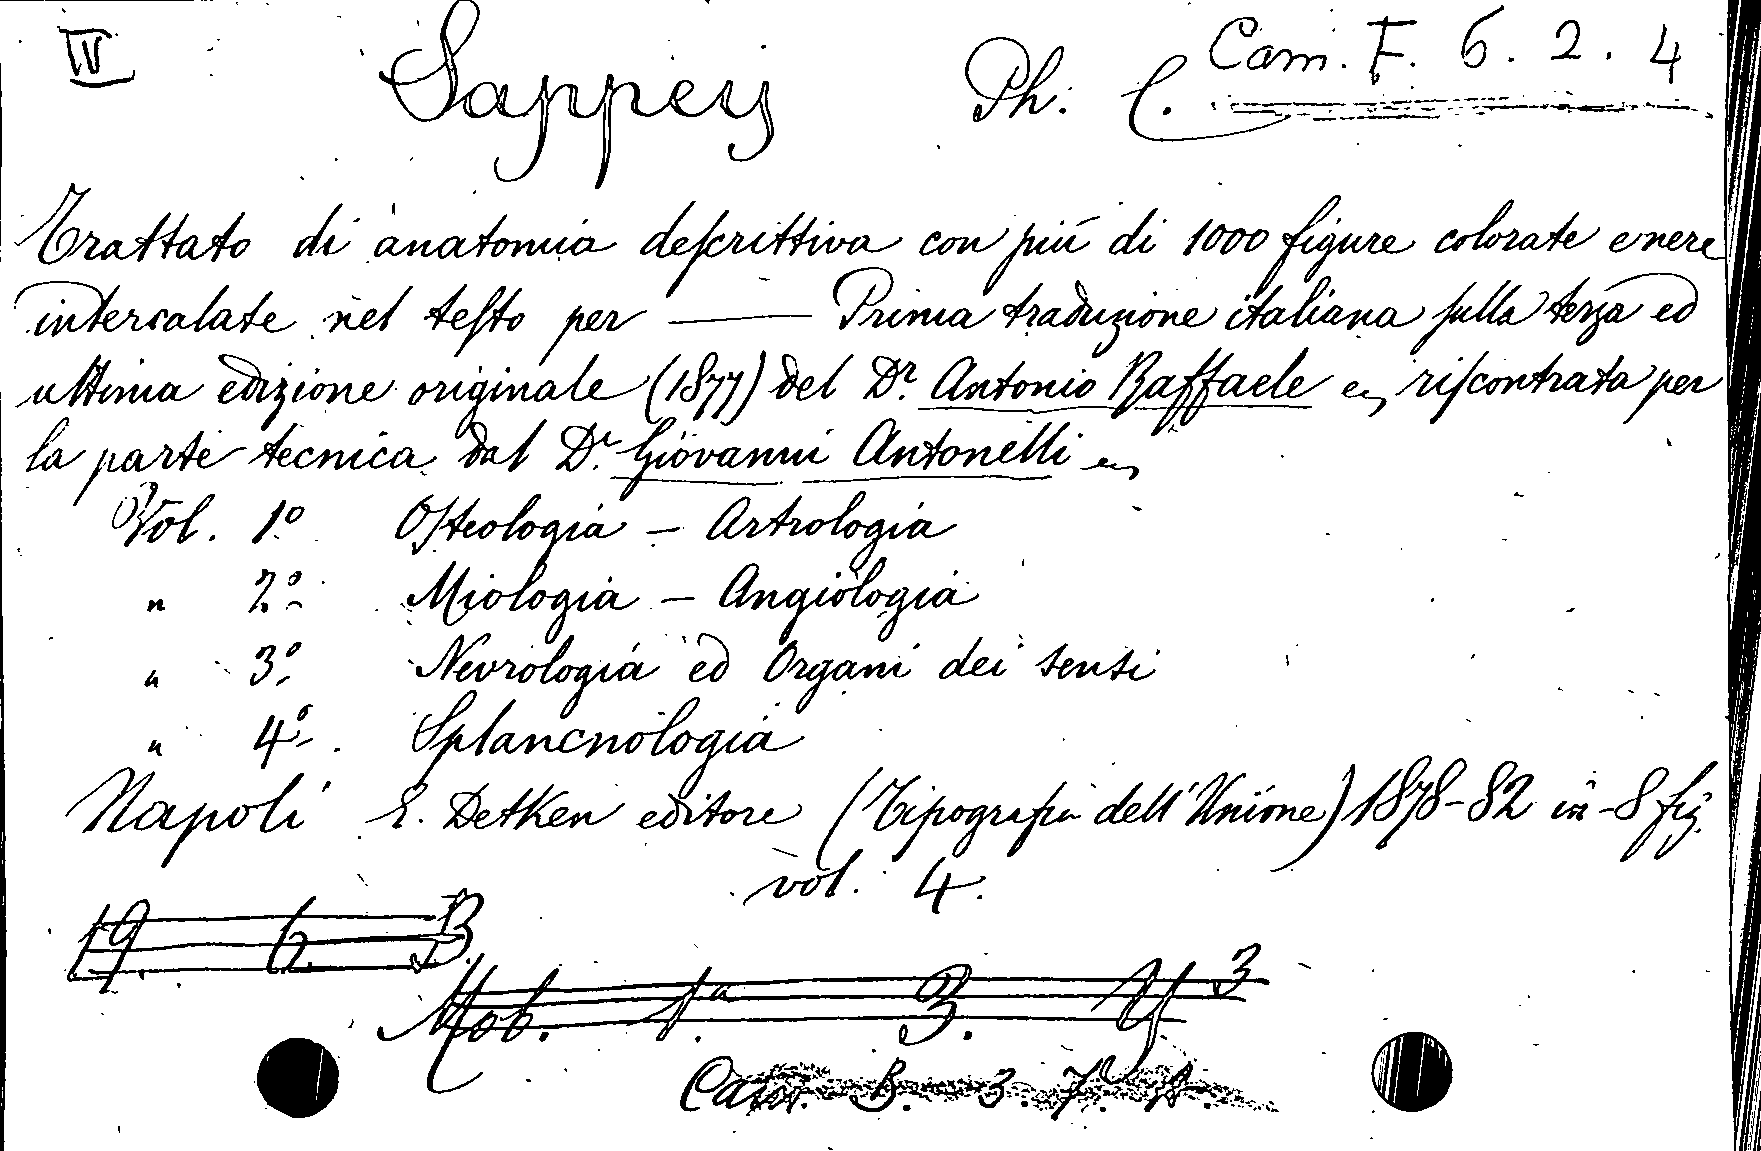 IV Sappey Ph. C. Cam. F. 6. 2. 4
Trattato di anatomia descrittiva con più di 1000 figure colorate e nere
intercalate nel testo per —— Prima traduzione italiana sulla terza ed
ultima edizione originale (1877) del Dr. Antonio Raffaele e, riscontrata per
la parte tecnica dal Dr. Giovanni Antonelli
Vol. 1º Osteologia – Artrologia
" 2º Miologia – Angiologia
" 3º Nevrologia ed Organi dei sensi
" 4º Splancnologia
Napoli E. Detken editore (Tipografia dell'Unione) 1878-82 in-8 fig.
vol. 4.
19. 6 B.
Mob. 1.ª 3. Y 3
B. 3. 7.